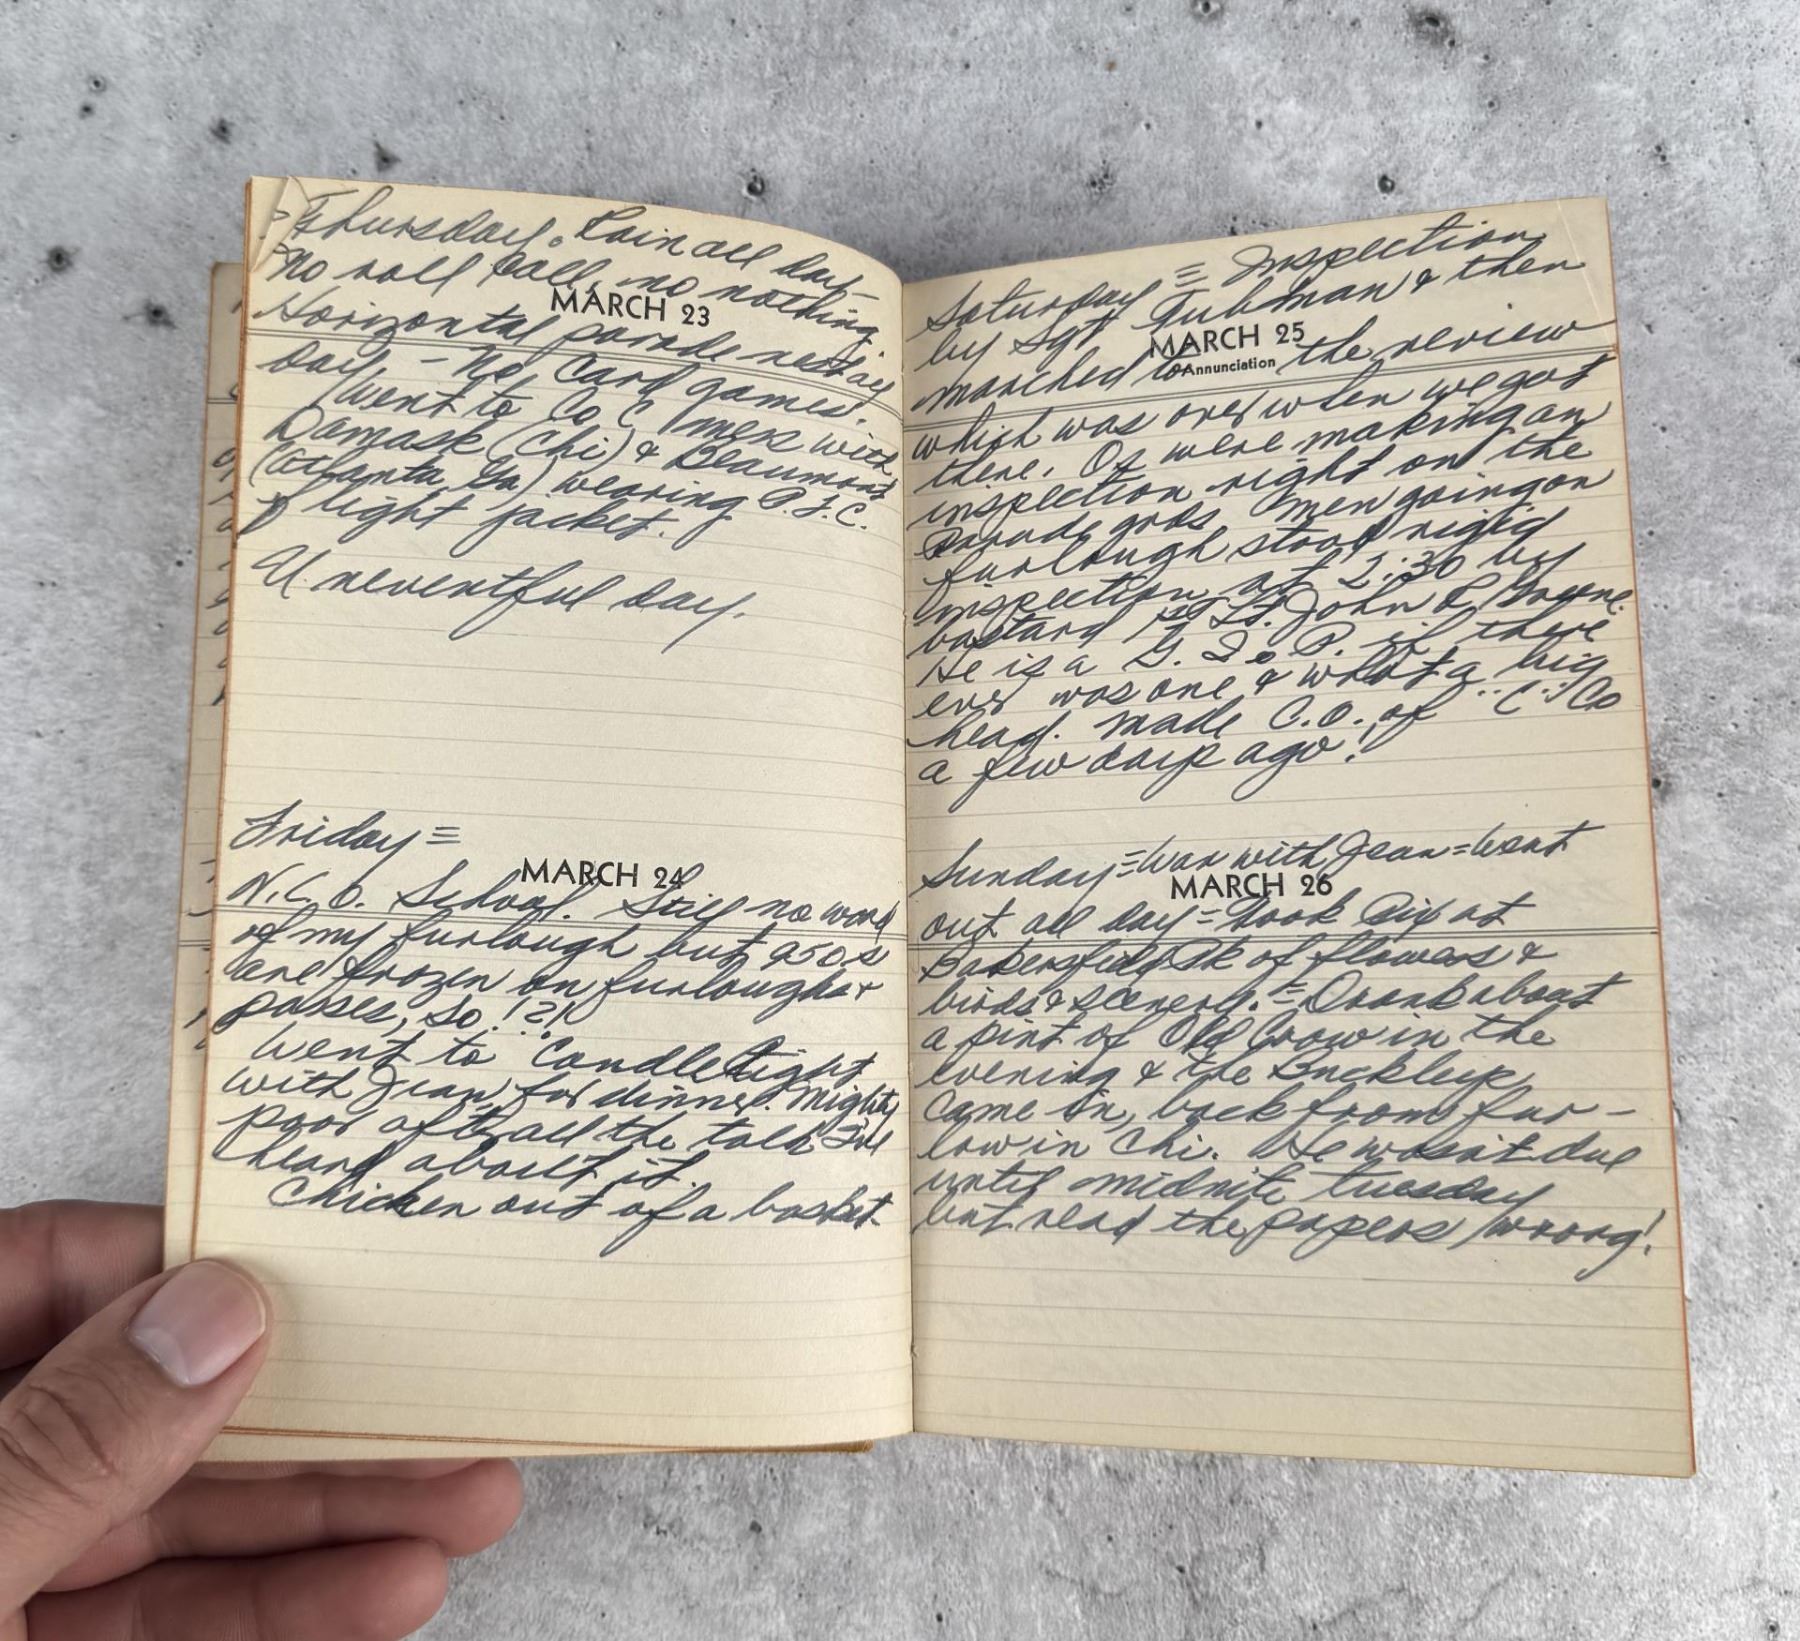 Thursday. Rain all day -
No roll call, no nothing
MARCH 23
Horizontal parade rest all
day - No card games.
Went to Co C mess with
Damask (Chi) & Beaumont
(Atlanta Ga) wearing P.F.C.
& light jacket.
Uneventful day.
Friday =
MARCH 24
N.C.O. School. Still no word
of my furlough but 950s
are frozen on furloughs &
passes, so!?!
Went to "Candlelight
with Jean for dinner. Mighty
poor after all the talk I've
heard about it.
Chicken out of a basket
Saturday = Inspection
by Sgt Tubman & then
MARCH 25
Annunciation
marched to the review
which was over when we got
there. Os were making an
inspection right on the
Parade grds. Men going on
furlough stood rigid
inspection at 2:30 by
bastard 1st Lt. John L
He is a G. I. P. if there
ever was one & what a big
head. Made C.O. of "C" Co
a few days ago!
Sunday = Was with Jean = Went
MARCH 26
out all day = Took Pix at
Pk of flowers &
birds & scenery. = Drank about
a pint of Old Crow in the
evening & the Buckleys
came in, back from fur-
low in Chi. He wasn't due
until midnite tuesday
but read the papers wrong!